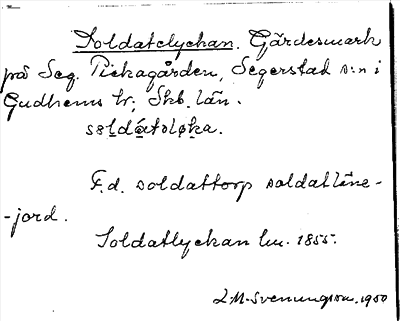 Soldatlyckan. Gärdesmark
på Seg. Pickagården, Segerstad s:n i
Gudhems hr; Skb. län.
soldatsløka.
F.d. soldattorp soldatläne-
-jord.
Soldatlyckan lm. 1855.
L M. Svenungsson. 1950